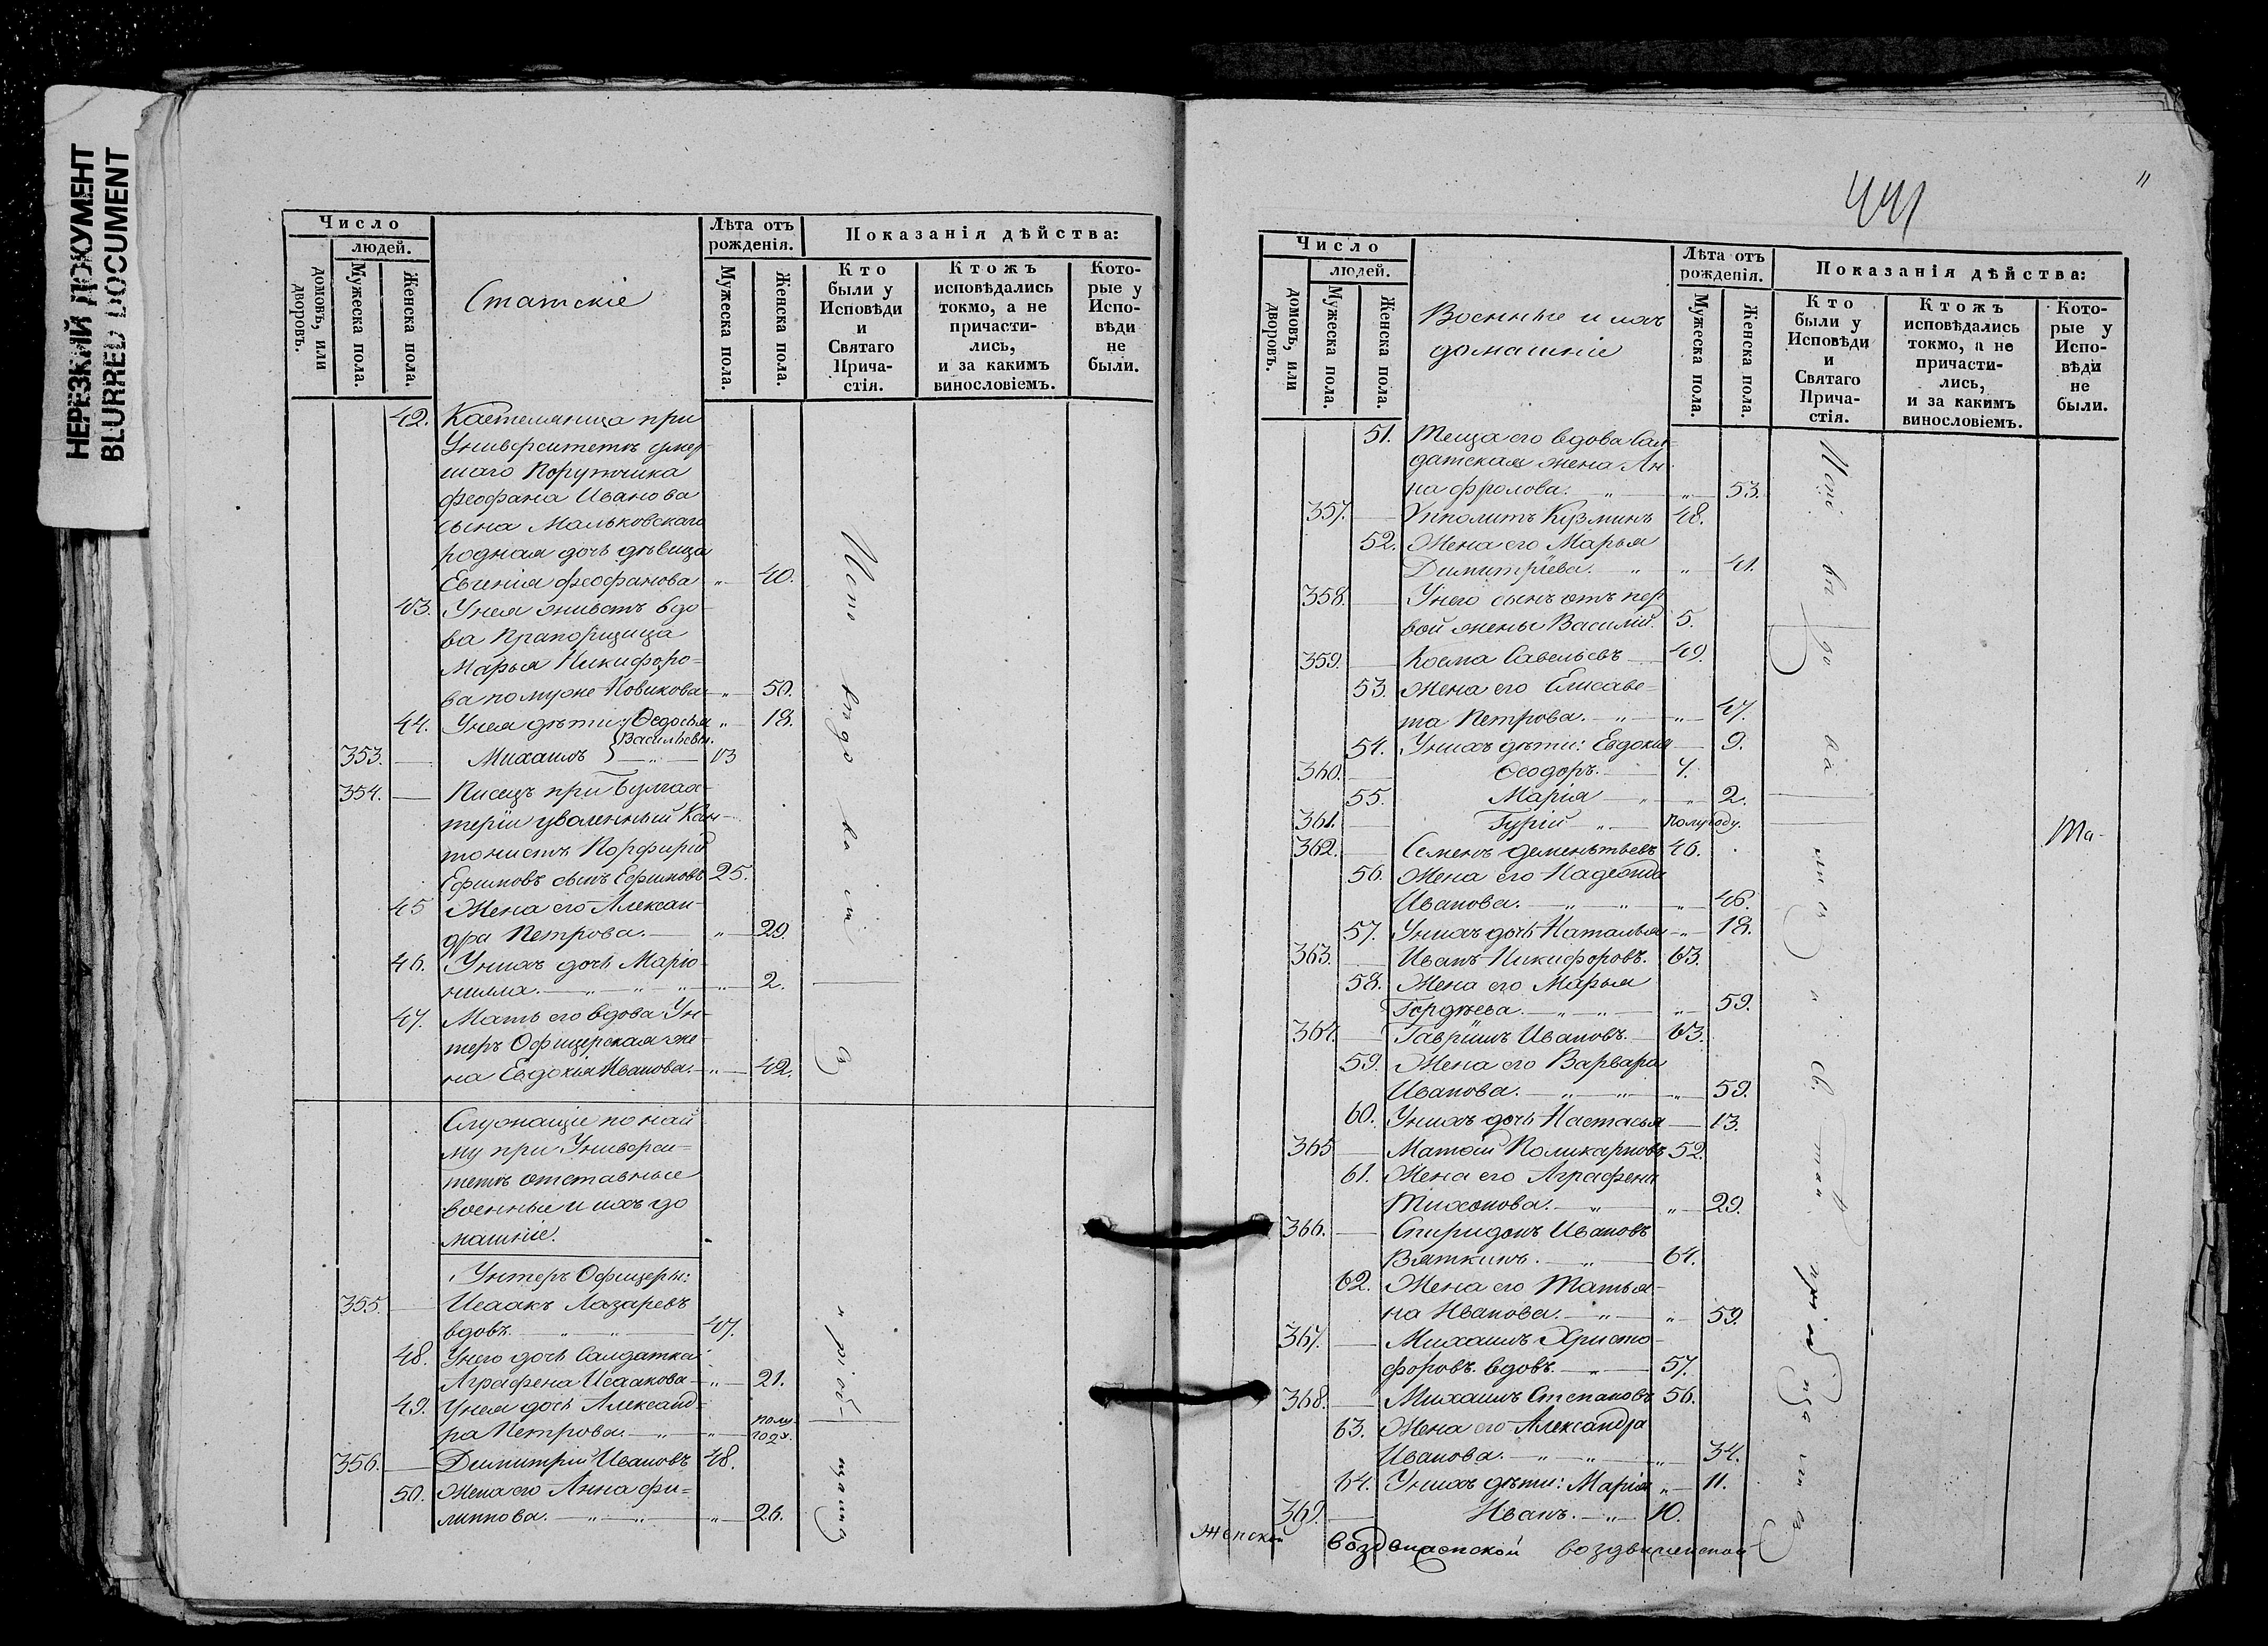 НЕРЕЗКИЙ ДОКУМЕНТ
BLURRED DOCUMENT
Число
людей.
домовъ, или дворовъ.
Мужеска пола.
Женска пола.
Статскіе
Лѣта отъ рожденія.
Мужеска пола.
Женска пола.
Показанія дѣйства:
Кто были у Исповѣди и Святаго Прича-стія.
Ктожъ исповѣдались токмо, а не причасти-лись, и за какимъ винословіемъ.
Кото-рые у Испо-вѣди не были.
42. Кастелянща при
Университетѣ умер
шаго Поручика
Феофана Иванова
сына Мальковскаго
родная дочь дѣвица
Евгенія Феофанова „ 40.
43. У нея живетъ вдо-
ва Прапорщица
Марья Никифоро-
ва по мужѣ Новикова „ 50.
44. У нея дѣти: Ѳедосья „ 18.
Васильевы.
353. Михаилъ „ 13
354. Писецъ при Бухгал-
теріи уволенный Кан-
тонистъ Порфирій
Ефимовъ сынъ Ефимовъ 25.
45 Жена его Алексан-
дра Петрова. „ 29.
46. У нихъ дочь Маріо-
нилла. „ „ „ „ 2.
47. Мать его вдова Ун-
теръ Офицерская же-
на Евдокія Иванова. „ 42.
Служащіе по най
му при Универси-
тетѣ отставные
военные и ихъ до
машніе.
Унтеръ Офицеры:
355. Исаакъ Лазаревъ
вдовъ. „ „ 47.
48. У него дочь Салдатка
Аграфена Исаакова „ 21.
49. У нея дочь Александ-
ра Петрова. „ „ полу-
года.
356. Димитрій Ивановъ 48.
50. Жена его Анна Фи-
липпова. „ „ „ 26.
441
"
Число
людей.
домовъ, или дворовъ.
Мужеска пола.
Женска пола.
Военные и ихъ
домашніе
Лѣта отъ рожденія.
Мужеска пола.
Женска пола.
Показанія дѣйства:
Кто были у Исповѣди и Святаго Прича-стія.
Ктожъ исповѣдались токмо, а не причасти-лись, и за какимъ винословіемъ.
Кото-рые у Испо-вѣди не были.
51. Теща его вдова Сал-
датская жена Ан
на Фролова. „ „ 53.
357. Упполитъ Кузминъ 48.
52. Жена его Марья
Димитріева. „ „ 41.
358. У него сынъ отъ пер
вой жены Василій. 5.
359. Косма Савельевъ 49.
53. Жена его Елисаве-
та Петрова. „ „ 47.
54. У нихъ дѣти: Евдокія 9.
360. Ѳеодоръ. 4.
55. Марія „ „ 2.
361. Гурій „ полугоду.
362. Семенъ Дементьевъ 46.
56. Жена его Надежда
Иванова. „ „ „ 46.
57. У нихъ дочь Наталья „ 18.
363. Иванъ Никифоровъ. 63.
58. Жена его Марья
Гордѣева. „ „ „ 59.
364. Гавріилъ Ивановъ. 63.
59. Жена его Варвара
Иванова. „ „ „ 59.
60. У нихъ дочь Настасья 13.
365 Матѳій Поликарповъ 52.
61. Жена его Аграфена
Тихонова. „ „ 29.
366. Спиридонъ Ивановъ
Вяткинъ. „ 64.
62. Жена его Татья-
на Иванова. „ „ 59.
367. Михаилъ Христо-
форовъ. вдовъ. „ 57.
368. Михаилъ Степановъ 56.
63. Жена его Александра
Иванова. „ „ „ 34.
64. У нихъ дѣти: Марія „ 11.
369. Иванъ. „ 10.
Та-
Женской воздвиженской